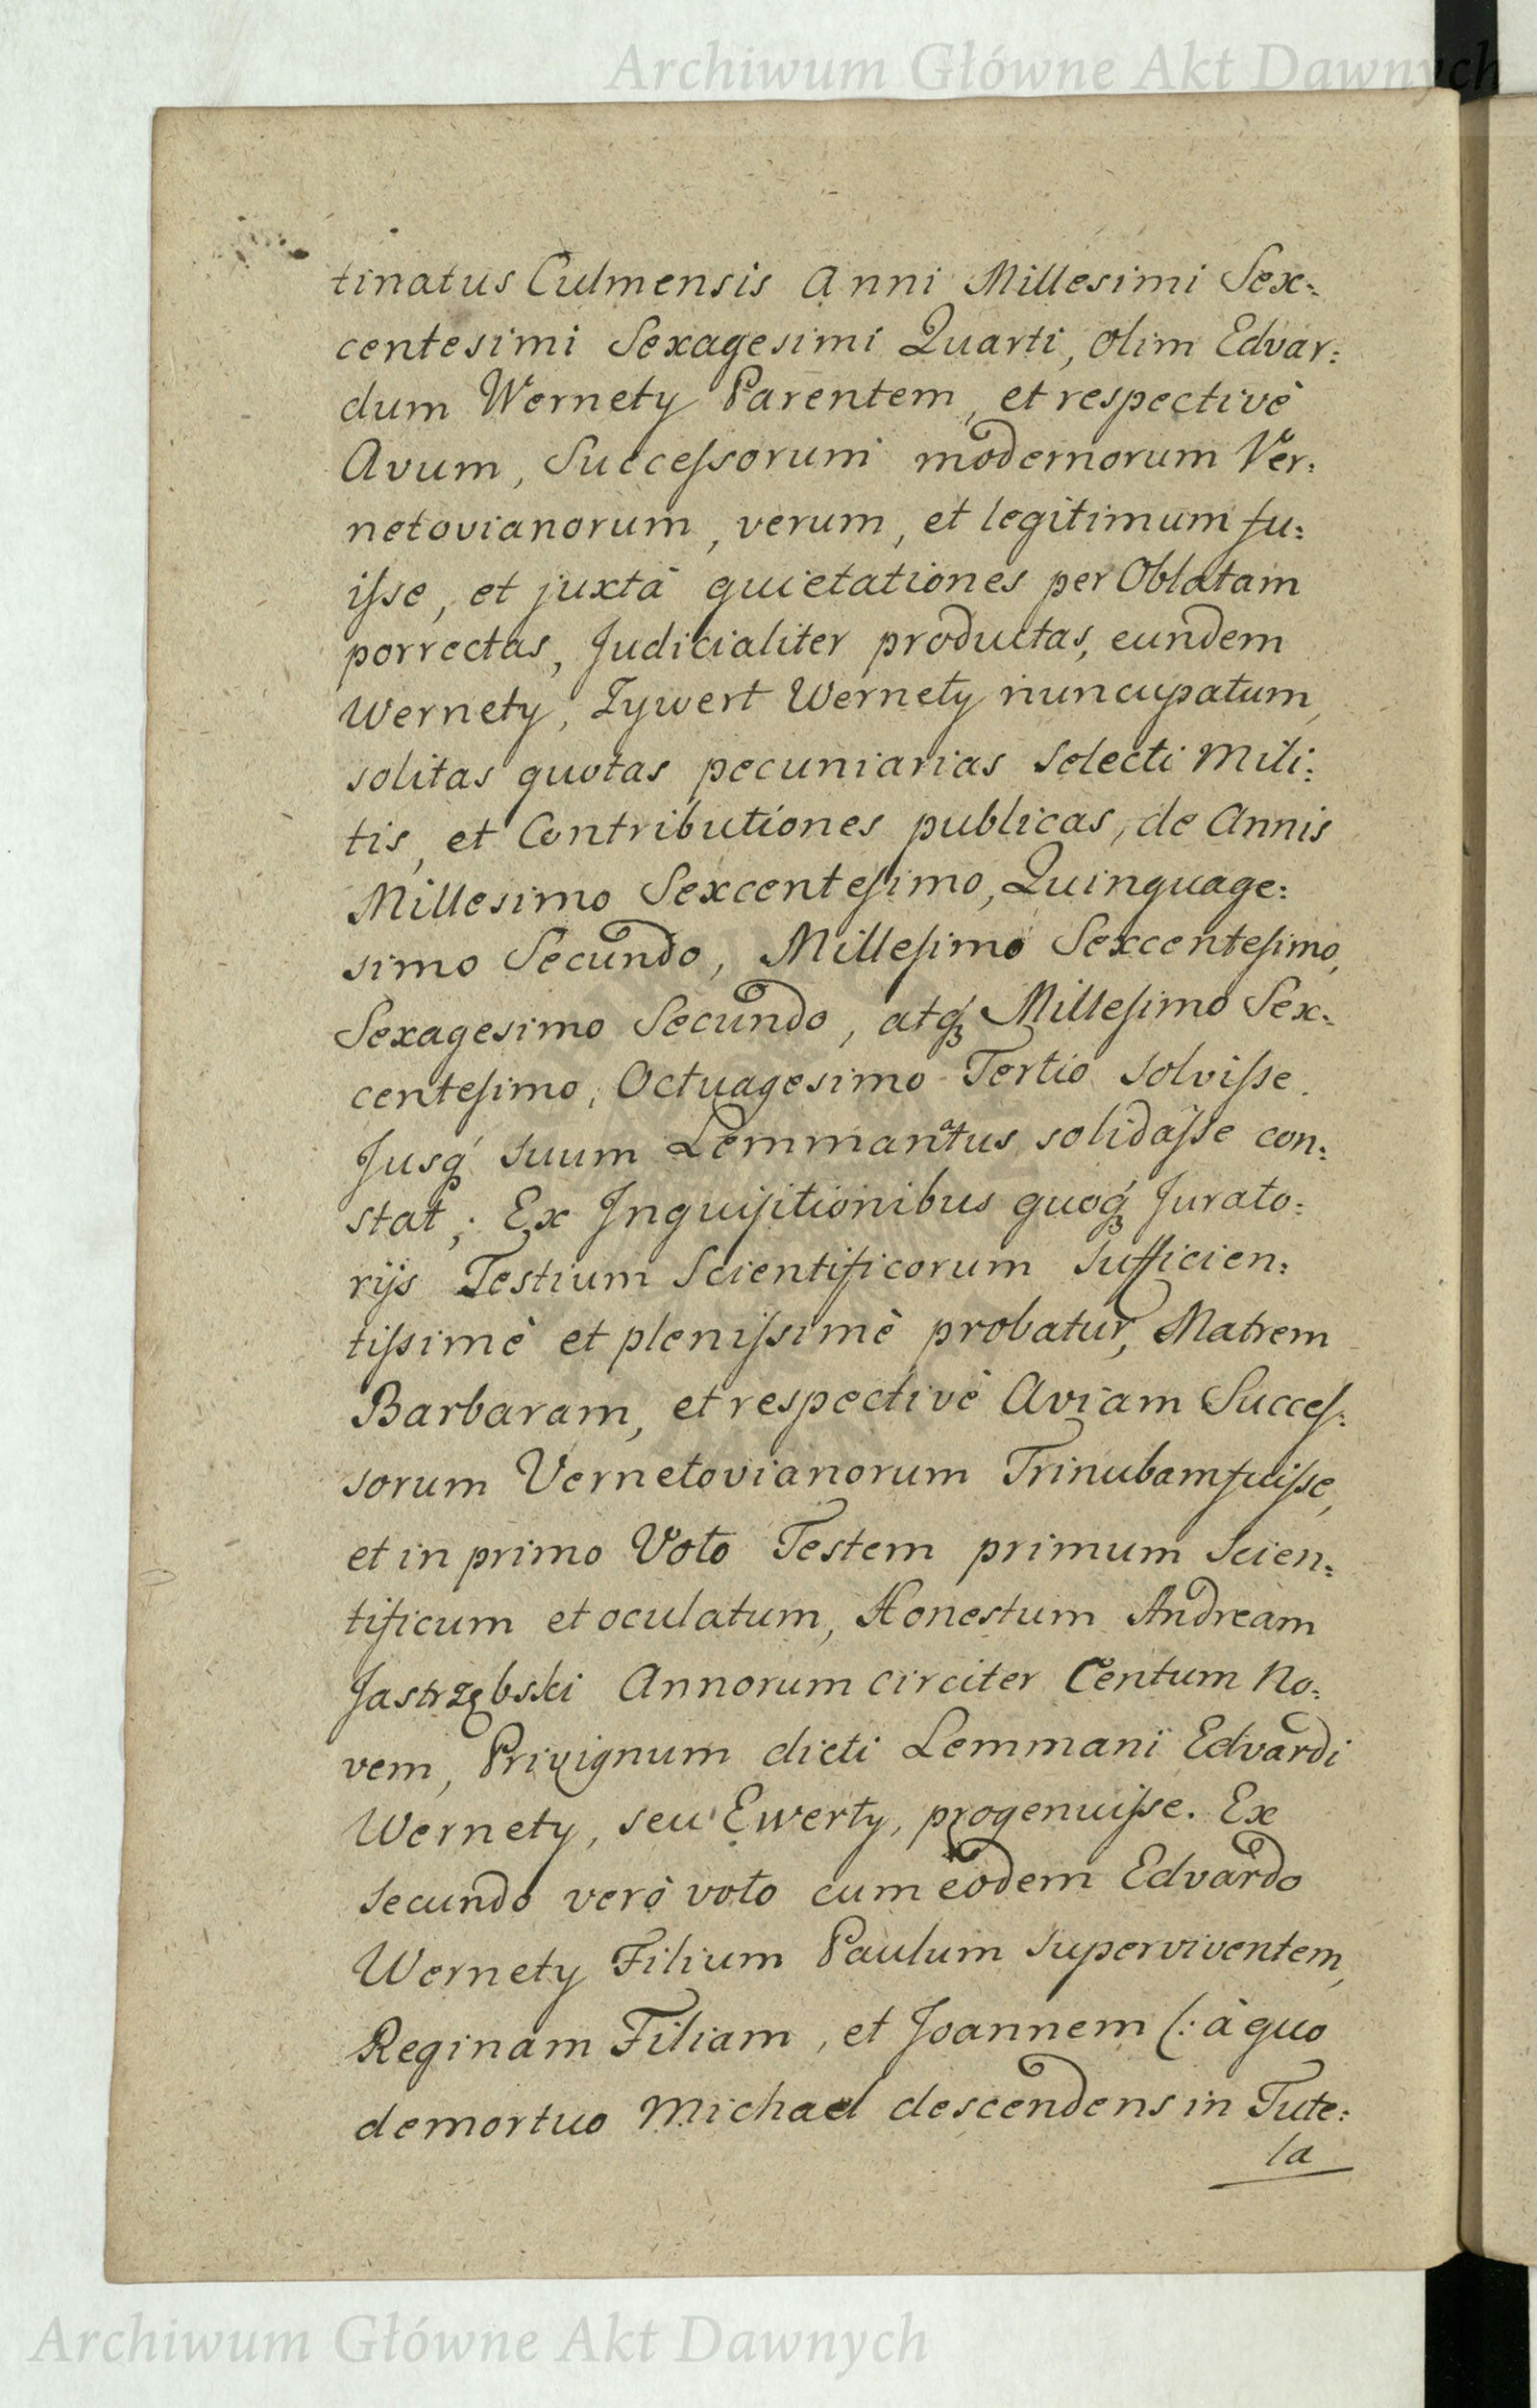 Archiwum Główne Akt Dawnych
tinatus Culmensis Anni Millesimi Sex:
centesimi Sexagesimi Quarti, olim Edvar:
dum Wernety Parentem, et respectivè
Avum, Succeſsorum modernorum Ver:
netovianorum, verum, et legitimum fu:
iſse, et juxtà quietationes per Oblatam
porrectas, Judicialiter productas, eundem
Wernety, Zywert Wernety nuncupatum,
solitas quotas pecuniarias Selecti Mili:
tis, et Contributiones publicas, de Annis
Millesimo Sexcenteſimo, Quinquage:
simo Secundo, Milleſimo Sexcenteſimo,
Sexagesimo Secundo, atq́ꝫ Milleſimo Sex:
centeſimo, Octuagesimo Tertio solviſse.
Jusq́ suum Lemmanatus solidaſse con:
stat; Ex Inquiſitionibus quoq́ꝫ Jurato:
rijs Testium Scientificorum sufficien:
tiſsimè et pleniſsimè probatur, Matrem
Barbaram, et respectivè Aviam Succeſ:
sorum Vernetovianorum Trinubam fuiſse,
et in primo Voto Testem primum Scien:
tificum et oculatum, Honestum Andream
Jastrzębski Annorum circiter Centum No:
vem, Privignum dicti Lemmani Edvardi
Wernety, seu Ewerty, progenuiſse. Ex
secundo verò voto cum eodem Edvardo
Wernety Filium Paulum superviventem,
Reginam Filiam, et Joannem (: à quo
demortuo Michael descendens in Tute:
la
Archiwum Główne Akt Dawnych